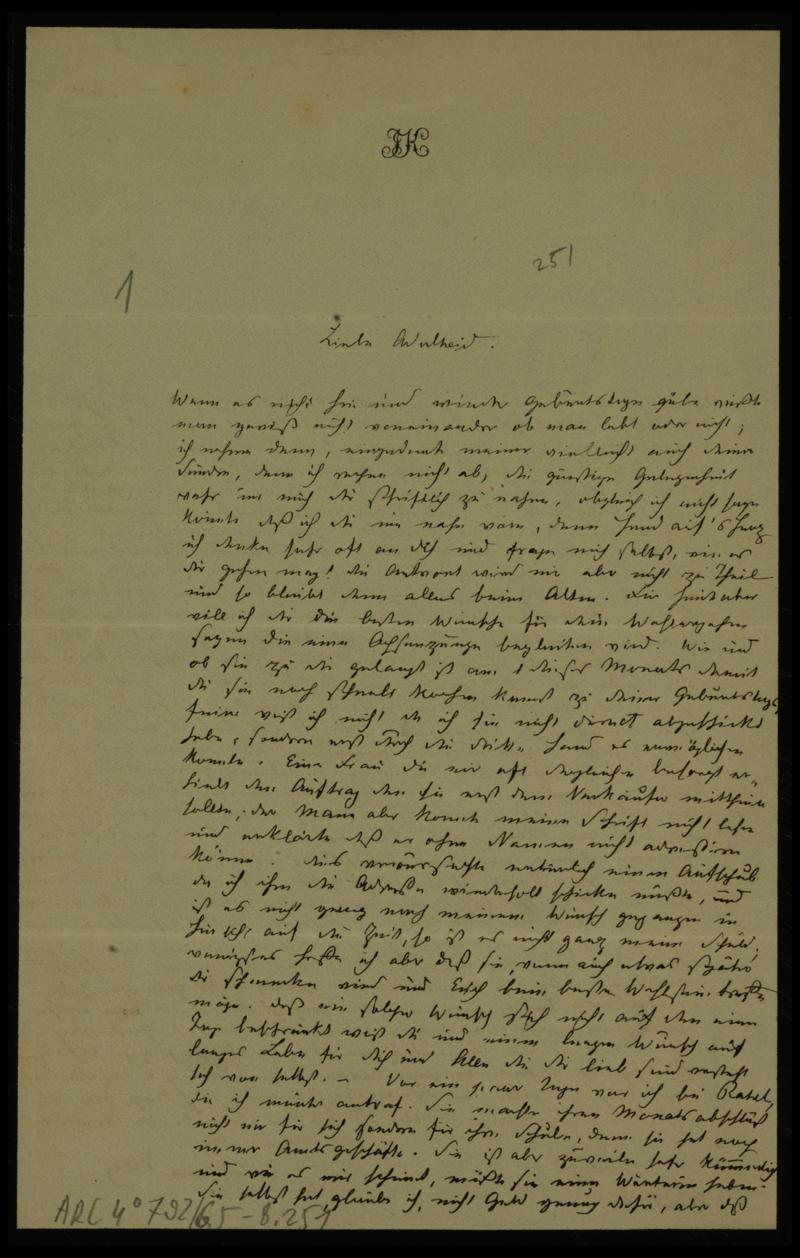 JK
251
1
Liebe Adelheid.
Wenn es nicht hie und wieder Geburtstage gäbe wüßte
man gewiß nicht voneinander ob man lebt oder nicht;
ich nehme denn, eingedenk meiner vielleicht auch deiner
Sünden, denn ich rechne nicht ab, die günstige Gelegenheit
wahr um mich dir schriftlich zu nahen, obgleich ich nicht sagen
könnte daß ich dir nie nahe wäre, denn Hand auf's Herz
ich denke sehr oft an dich und frage mich selbst, wie es
dir gehen mag! die Antwort wird mir aber nicht zu Theil
und so bleibt denn alles beim Alten. Für heute aber
will ich dir die besten Wünsche für dein Wohlergehen
sagen die eine Ochsenzunge begleiten wird. Wie und
ob sie zu dir gelangt ist am 1 dieses Monats damit
du sie noch schnell kochen kannst zu deiner Geburtstags
feier weiß ich nicht da ich sie nicht direct abgeschickt
habe, sondern erst durch die dritte Hand es ermöglichen
konnte. Eine Frau die mir oft dergleichen besorgt er-
hielt den Auftrag den sie erst dem Verkäufer mittheilen
sollte, der Mann aber konnte meine Schrift nicht lesen
und erklärte daß er ohne Namen nicht adressiren
könne. dies verursachte natürlich einen Aufschub
da ich ihm die Adresse wiederholt schicken mußte, und
ist es nicht genug nach meinem Wunsch gegangen in
Hinsicht auf die Zeit, so ist es nicht ganz meine Schuld,
wenigstens hoffe ich aber daß sie, wenn auch etwas später
dir schmecken wird und Euch beim besten Wohlsein treffen
möge. daß ein solcher Wunsch sich nicht auf den einen
Tag beschränkt weißt du und einen langen Wunsch auf
langes Leben für dich und Alle die dir lieb sind versteht
sich von selbst. – Vor ein paar Tagen war ich bei Rahel,
die ich munter antraf. Sie machte ihren Monatsabschluß
nicht nur für sich sondern für ihre Schule, denn sie hat noch
immer Amtsgeschäfte. Sie ist aber zuweilen sehr kümmerlich
und wie es mir scheint, müßte sie eine Wärterin haben.
Sie selbst hat, glaube ich, nicht Geld genug dafür, aber daß
ARC 4° 792/65-8.251